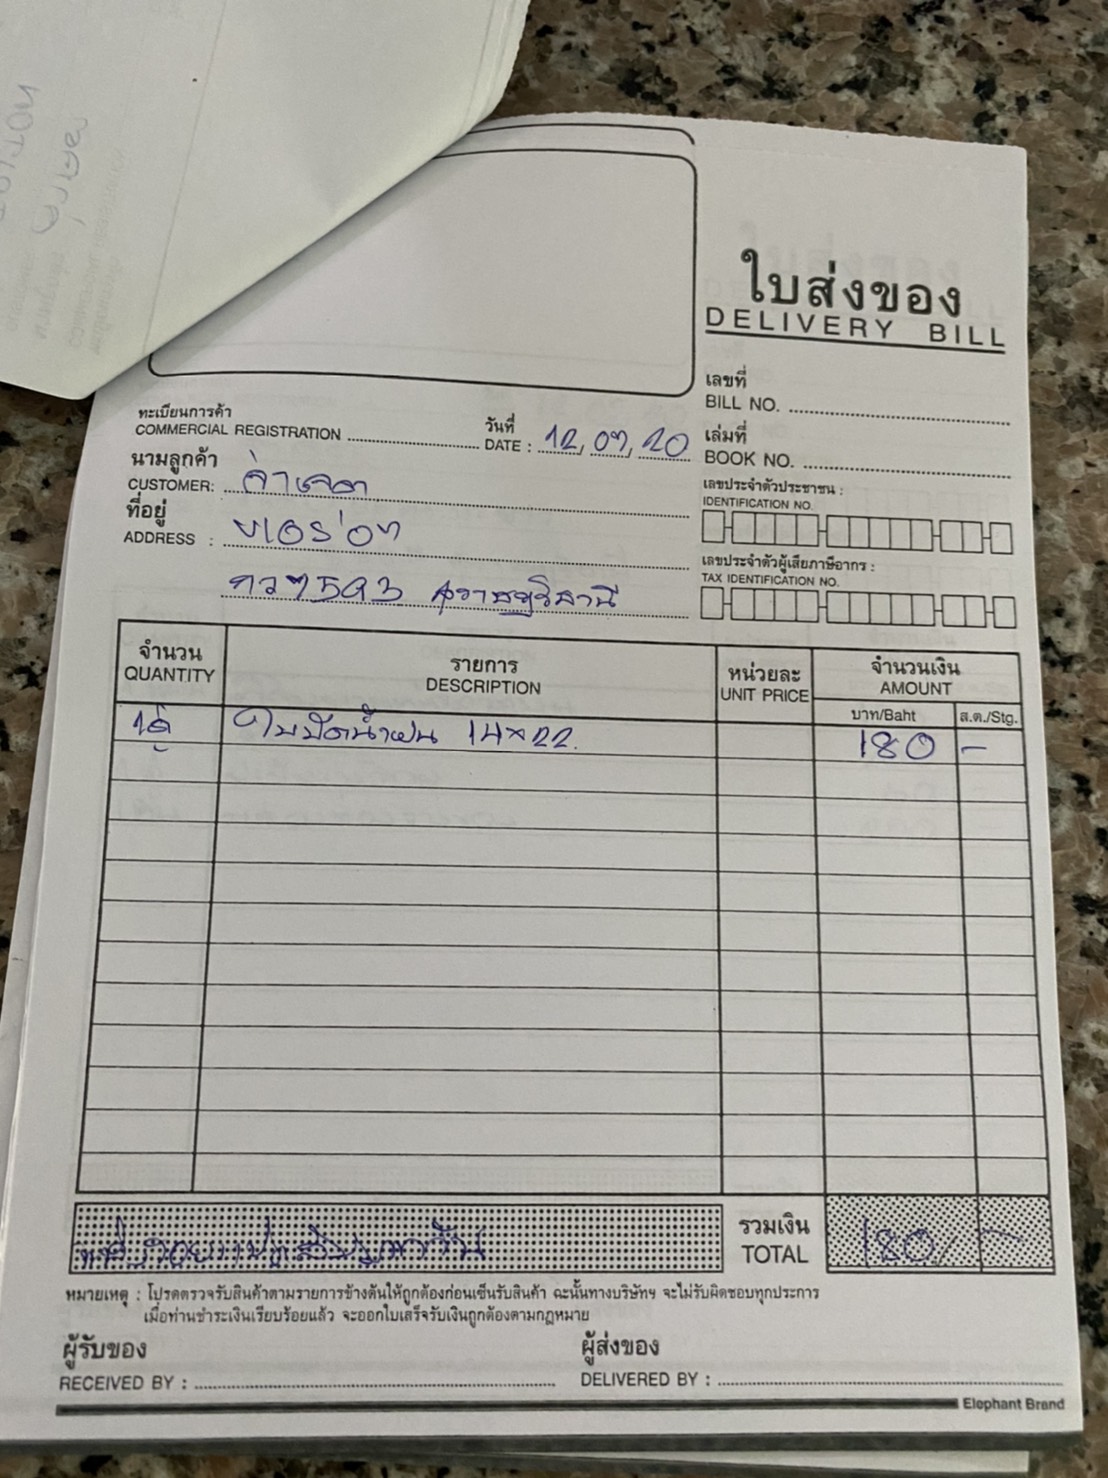 ใบส่งของ
DELIVERY BILL
เลขที่
BILL NO.
ทะเบียนการค้า
COMMERCIAL REGISTRATION
วันที่
DATE : 12, 07, 20
เล่มที่
BOOK NO.
นามลูกค้า
CUSTOMER:
เลขประจำตัวประชาชน :
IDENTIFICATION NO.
ที่อยู่
ADDRESS :
เลขประจำตัวผู้เสียภาษีอากร :
TAX IDENTIFICATION NO.
593 สุราษฎร์ธานี
จำนวน รายการ หน่วยละ จำนวนเงิน
QUANTITY DESCRIPTION UNIT PRICE AMOUNT
บาท/Baht ส.ต./Stg.
1คู่ ใบปัดน้ำฝน 14x22. 180 -
รวมเงิน
TOTAL 180/-
หมายเหตุ : โปรดตรวจรับสินค้าตามรายการข้างต้นให้ถูกต้องก่อนเซ็นรับสินค้า ฉะนั้นทางบริษัทฯ จะไม่รับผิดชอบทุกประการ
เมื่อท่านชำระเงินเรียบร้อยแล้ว จะออกใบเสร็จรับเงินถูกต้องตามกฎหมาย
ผู้รับของ ผู้ส่งของ
RECEIVED BY : DELIVERED BY :
Elephant Brand